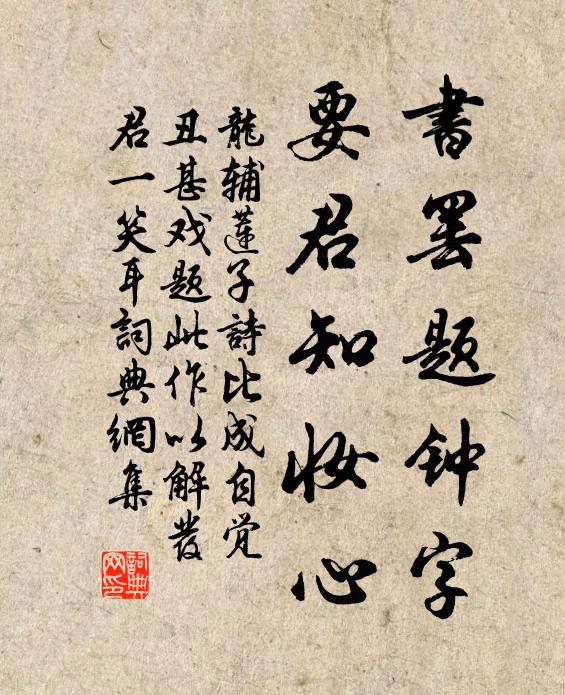 書罢题钟字
要君知妆心
龍辅蓮子詩比成自觉
丑甚戏题此作以解發
君一笑耳詞典網集
詞典
网印